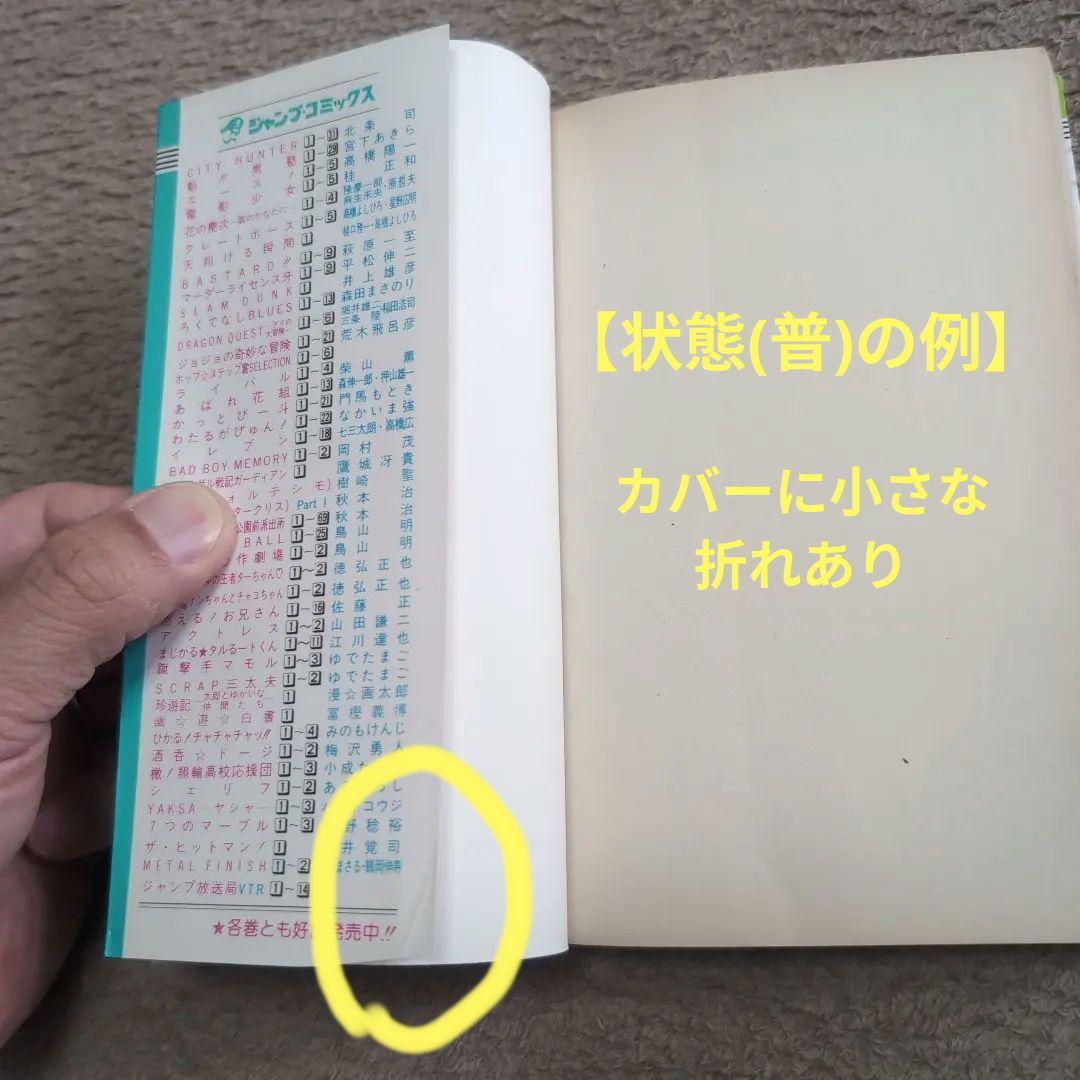 ジャンプ・コミックス
CITY HUNTER 1〜31 北条司
魁!!男塾 1〜29 宮下あきら
エース! 1〜5 高橋陽一
電影少女 1〜5 桂正和
花の慶次―雲のかなたに― 1〜4 隆慶一郎・原哲夫 麻生未央
グレートホース 1〜5 高橋よしひろ・星野広明
天翔ける瞬間 1 樋口雅一・高橋よしひろ
BASTARD!! 1〜9 萩原一至
マーダーライセンス牙 1〜9 平松伸二
SLAM DUNK 1 井上雄彦
ろくでなしBLUES 1〜13 森田まさのり
DRAGON QUEST ダイの大冒険 1〜6 堀井雄二 三条陸・稲田浩司
ジョジョの奇妙な冒険 1〜21 荒木飛呂彦
ホップ☆ステップ賞SELECTION 1〜6
ライバル 1〜4 柴山薫
あばれ花組 1〜13 森伸一郎・押山雄一
かっとび一斗 1〜21 門馬もとき
わたるがぴゅん! 1〜22 なかいま強
イレブン 1〜18 七三太朗・高橋広
BAD BOY MEMORY 1〜2 岡村茂
戦記ガーディアン 1 鷹城冴貴
ォルテシモ) 樹崎聖
タークリス) Part 1 秋本治
公園前派出所 1〜69 秋本治
BALL 1〜25 鳥山明
作劇場 1〜2 鳥山明
の王者ターちゃん♡ 1〜2 徳弘正也
ンちゃんとチャコちゃん 1〜2 徳弘正也
燃える!お兄さん 1〜16 佐藤正
アクトレス 1〜2 山田謙二
まじかる★タルるートくん 1〜11 江川達也
蹴撃手マモル 1〜3 ゆでたまご
SCRAP三太夫 1〜2 ゆでたまご
珍遊記―太郎とゆかいな仲間たち― 1 漫☆画太郎
幽☆遊☆白書 1 冨樫義博
ひかる!チャチャチャッ!! 1〜4 みのもけんじ
酒呑☆ドージ 1〜2 梅沢勇人
檄!翔輪高校応援団 1〜3 小成た
シェリフ 1〜2 あ し
YAKSA―ヤシャ― 1〜3 コウジ
7つのマーブル 1〜3 野稔裕
ザ・ヒットマン! 1 井覚司
METAL FINISH 1〜2 まさる・鶴岡伸寿
ジャンプ放送局VTR 1〜14
★各巻とも好評発売中!!
【状態(普)の例】
カバーに小さな
折れあり